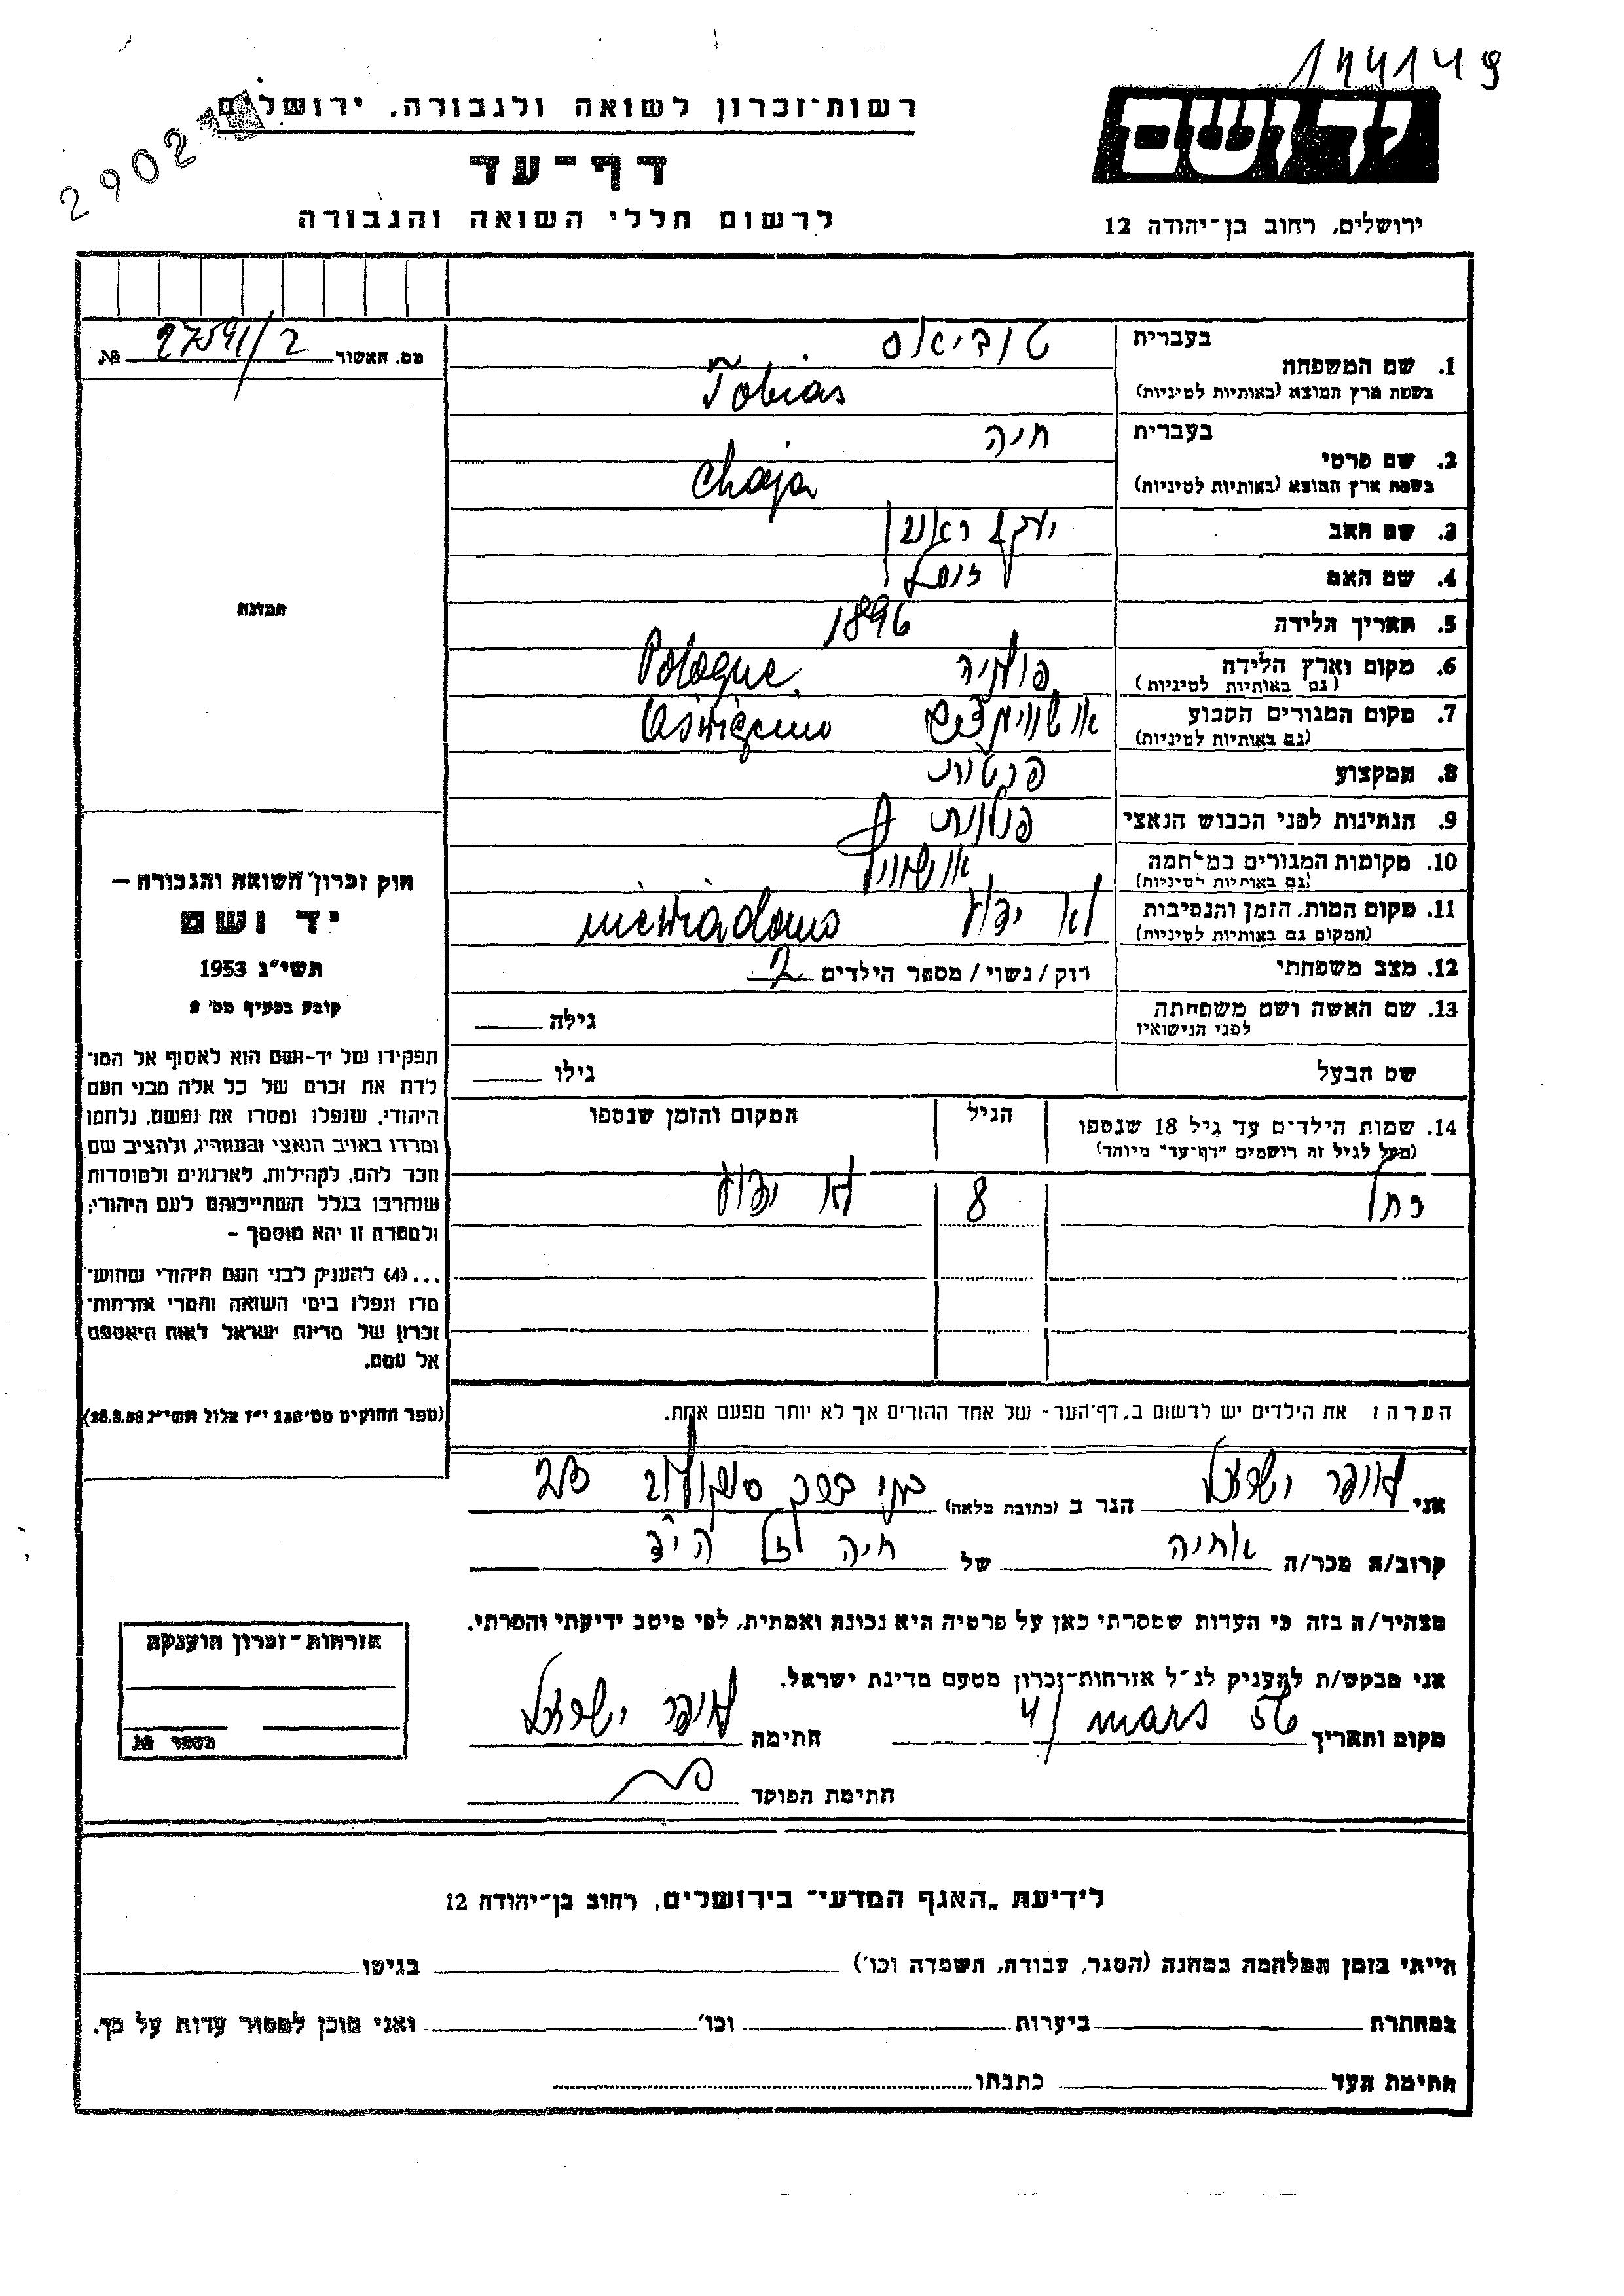 174149
רשות-זכרון לשואה ולגבורה, ירושלים
יד ושם
2902
דף-עד
לרשום חללי השואה והגבורה
ירושלים, רחוב בן-יהודה 12
בעברית
טוביאס
מס. האשור 27591/2 №
1. שם המשפחה
בשפת ארץ המוצא (באותיות לטיניות)
Tobias
בעברית
חיה
2. שם פרטי
בשפת ארץ המוצא (באותיות לטיניות)
Chaja
3. שם האב
יעקב ראובן
4. שם האם
5. תאריך הלידה
1896
תמונה
6. מקום וארץ הלידה
(גם באותיות לטיניות)
פולניה
Pologne
7. מקום המגורים הקבוע
(גם באותיות לטיניות)
Oswięcim
8. המקצוע
פרטית
9. הנתינות לפני הכבוש הנאצי
פולנית
10. מקומות המגורים במלחמה
(גם באותיות לטיניות)
11. מקום המות, הזמן והנסיבות
(המקום גם באותיות לטיניות)
לא ידוע
niewiadomo
12. מצב משפחתי
רוק/נשוי/מספר הילדים 2
13. שם האשה ושם משפחתה
לפני הנישואין
גילה
שם הבעל
גילו
חוק זכרון השואה והגבורה –
יד ושם
תשי"ג 1953
קובע בסעיף מס' 2
תפקידו של יד-ושם הוא לאסוף אל המו-
לדת את זכרם של כל אלה מבני העם
היהודי, שנפלו ומסרו את נפשם, נלחמו
ומרדו באויב הנאצי ובעוזריו, ולהציב שם
וזכר להם, לקהילות, לארגונים ולמוסדות
שנחרבו בגלל השתייכותם לעם היהודי;
ולמטרה זו יהא מוסמך –
...(4) להעניק לבני העם היהודי שהוש-
מדו ונפלו בימי השואה והמרי אזרחות-
זכרון של מדינת ישראל לאות היאספם
אל עמם.
(ספר החוקים מס' 132 י"ז אלול תשי"ג 28.8.53)
14. שמות הילדים עד גיל 18 שנספו
(מעל לגיל זה רושמים "דף-עד" מיוחד)
הגיל
המקום והזמן שנספו
רחל
8
לא ידוע
הערה: את הילדים יש לרשום ב"דף-העד" של אחד ההורים אך לא יותר מפעם אחת.
אני ישראל הגר ב (כתובת מלאה) בני ברק סוקולוב
קרוב/ה מכר/ה אחיה של חיה ז"ל הי"ד
מצהיר/ה בזה כי העדות שמסרתי כאן על פרטיה היא נכונה ואמתית, לפי מיטב ידיעתי והכרתי.
אני מבקש/ת להעניק לנ"ל אזרחות-זכרון מטעם מדינת ישראל.
מקום ותאריך 4/ mars 56 חתימה ישראל
חתימת הפוקד
אזרחות-זכרון הוענקה
מספר №
לידיעת "האגף המדעי" בירושלים, רחוב בן-יהודה 12
הייתי בזמן המלחמה במחנה (הסגר, עבודה, השמדה וכו') בגיטו
במחתרת ביערות וכו' ואני מוכן למסור עדות על כך.
חתימת העד כתבתו